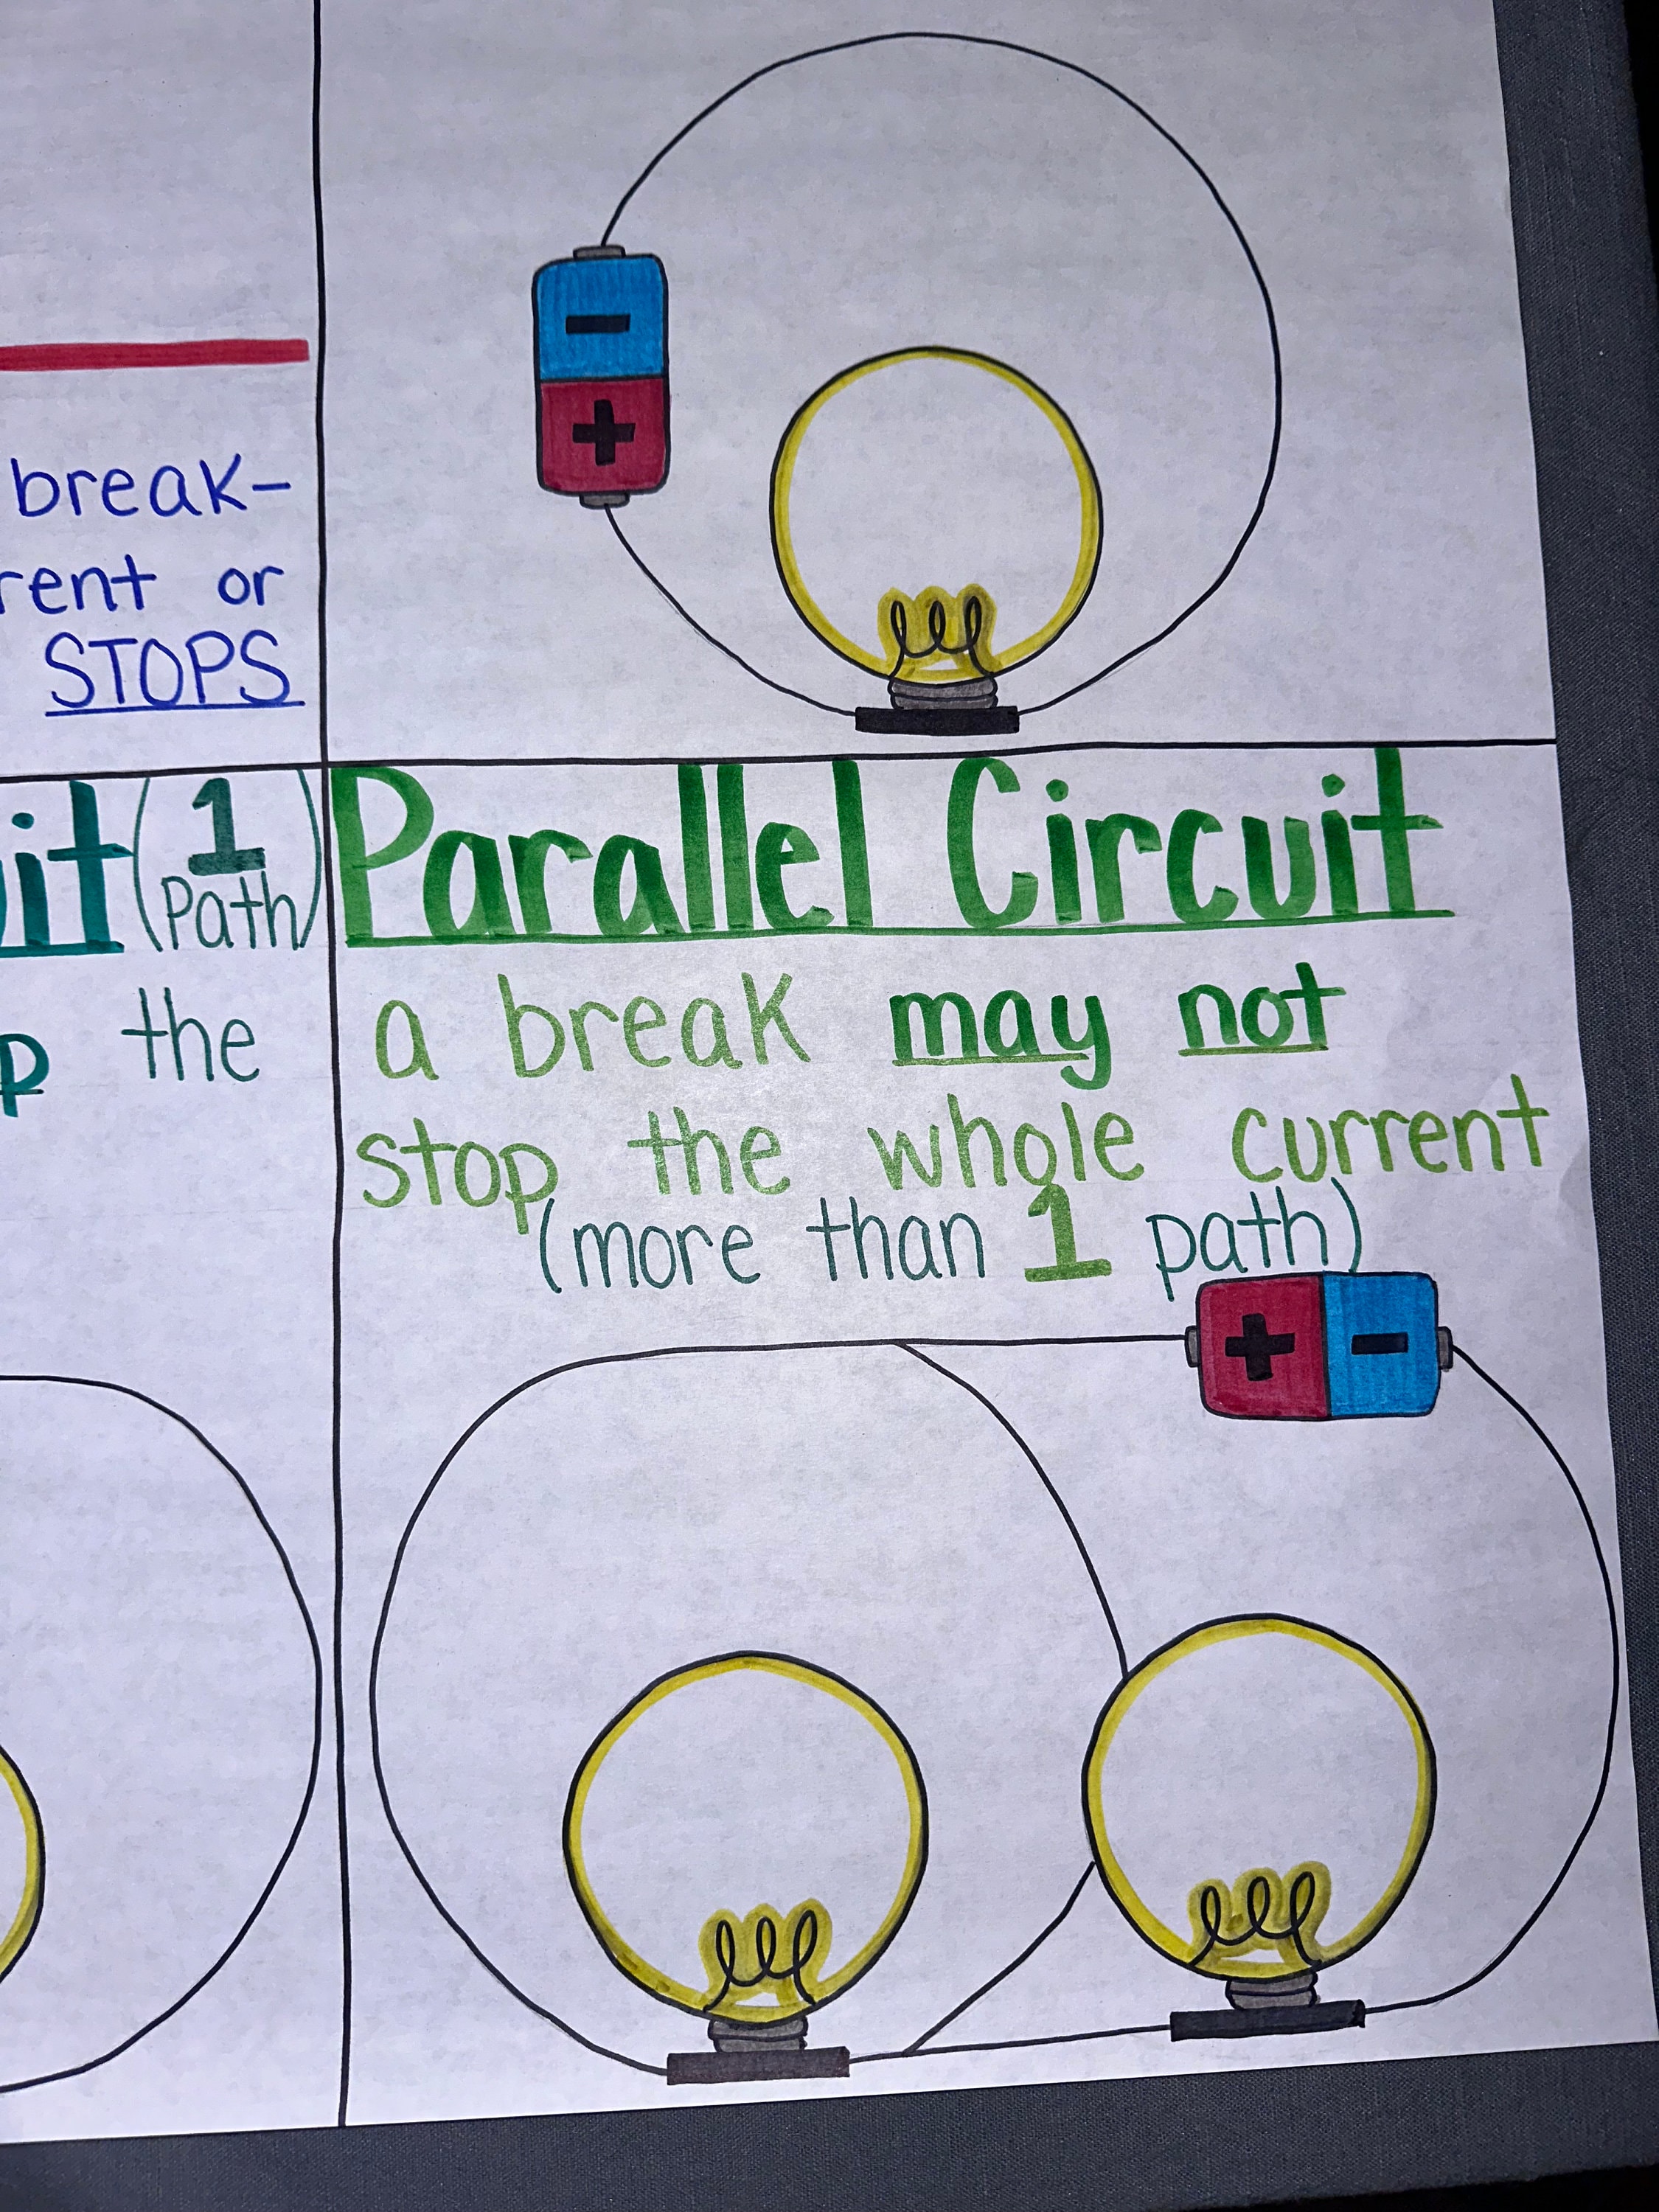 break-
or
STOPS
(1
Path)
the
Parallel Circuit
a break may not
stop the whole current
(more than 1 path)
-
+
+ -